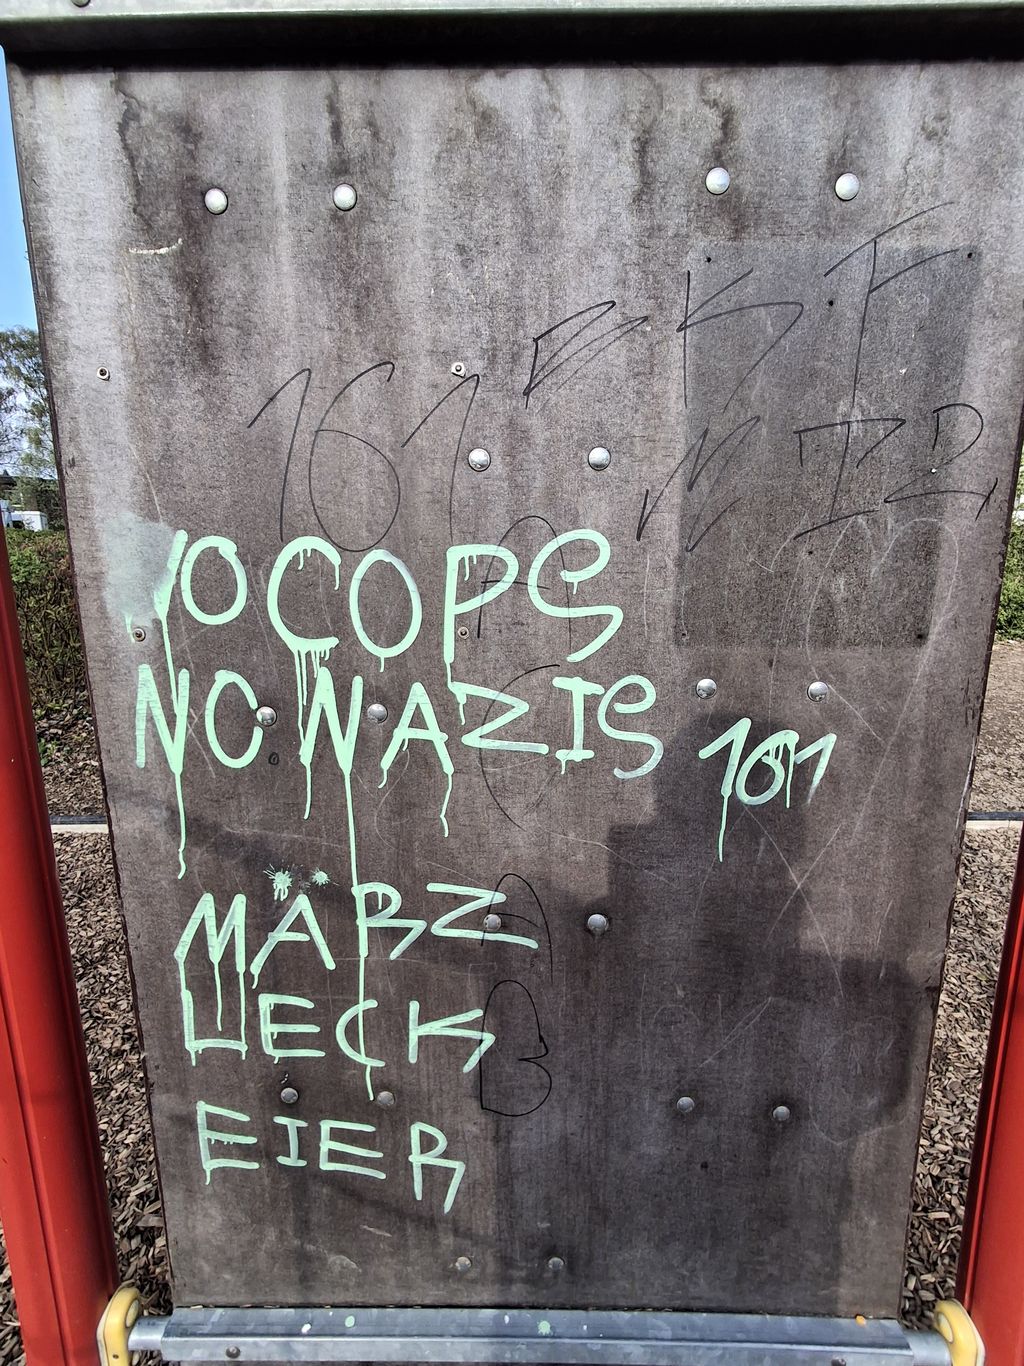 161
NO COPS
NO NAZIS
161
MÄRZ
LECK
EIER